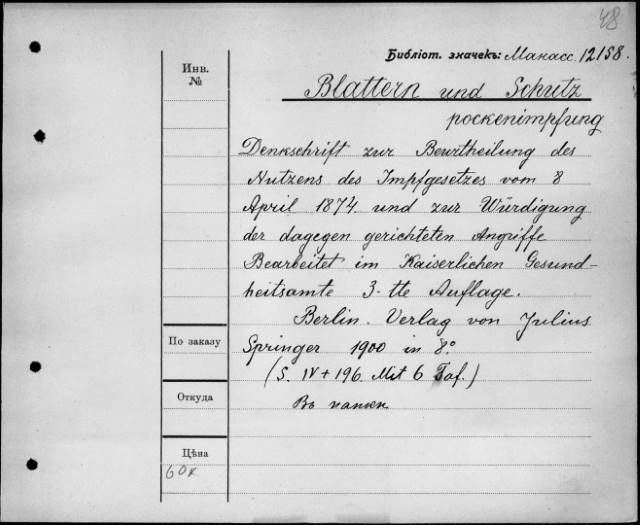 48
Библіот. значекъ: Манасс. 12158.
Инв.
№
Blattern und Schutz
pockenimpfung
Denkschrift zur Beurtheilung des
Nutzens des Impfgesetzes vom 8
April 1874 und zur Würdigung
der dagegen gerichteten Angriffe
Bearbeitet im Kaiserlichen Gesund-
heitsamte 3-tte Auflage.
Berlin. Verlag von Julius
По заказу
Springer 1900 in 8°
(S. IV + 196. Mit 6 Taf.)
Откуда
Въ папкѣ
Цѣна
60к